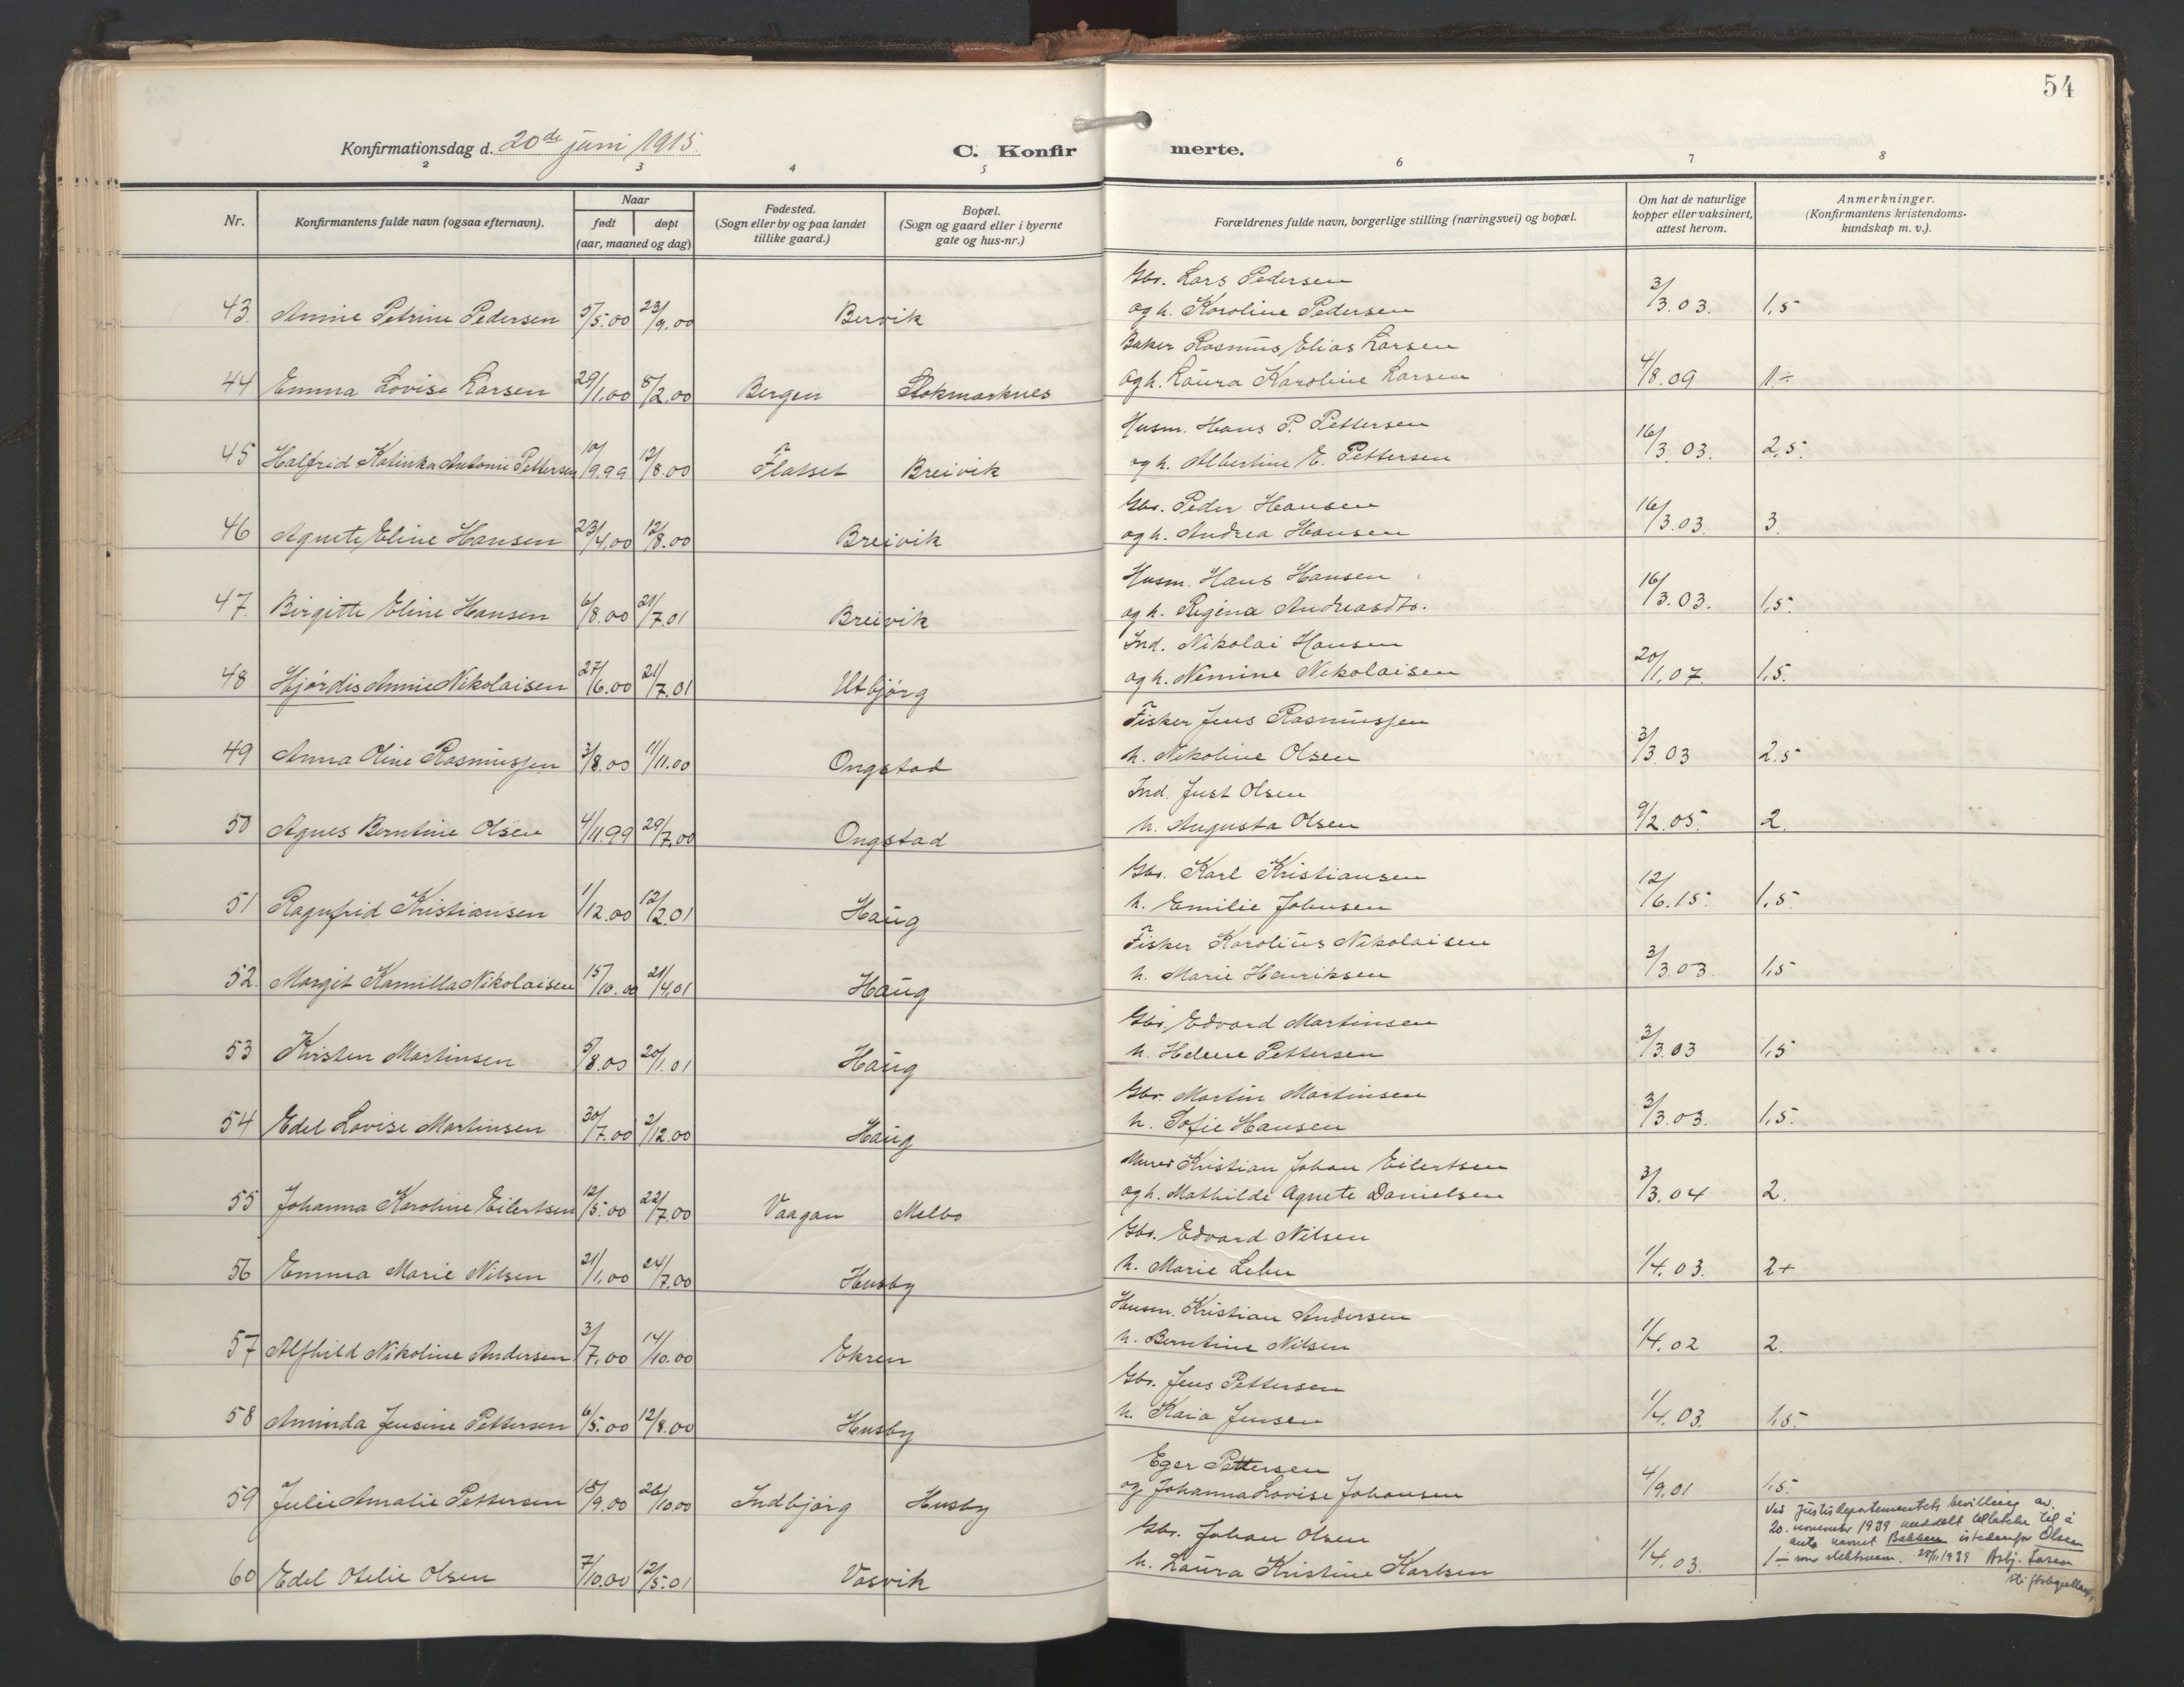 54
Konfirmationsdag d. 20de juni 1915.
C. Konfirmerte.
2 3 4 5 6 7 8
Nr.
Konfirmantens fulde navn (ogsaa efternavn).
Naar
født
døpt
(aar, maaned og dag)
Fødested.
(Sogn eller by og paa landet
tillike gaard.)
Bopæl.
(Sogn og gaard eller i byerne
gate og hus-nr.)
Forældrenes fulde navn, borgerlige stilling (næringsvei) og bopæl.
Om hat de naturlige
kopper eller vaksinert,
attest herom.
Anmerkninger.
(Konfirmantens kristendoms-
kundskap m. v.).
Gbr. Lars Pedersen
43. Annie Petrine Pedersen 5/5.00 23/9.00 Bervik og h. Karoline Pedersen 3/3.03. 1,5
Baker Rasmus Elias Larsen
44 Emma Lovise Larsen 29/1.00 5/2.00 Bergen Stokmarknes og h. Laura Karoline Larsen 4/8.09 1÷
Husm. Hans P. Pettersen
45 Halfrid Katinka Antonie Pettersen 10/9.99 12/8.00 Flatset Breivik og h. Albertine E. Pettersen 16/3.03. 2,5.
Gbr. Peder Hansen
46 Agnete Eline Hansen 23/4.00 12/8.00 Breivik og h. Andrea Hansen 16/3.03. 3.
Husm. Hans Hansen
47. Birgitte Eline Hansen 6/8.00 21/7.01 Breivik og h. Regina Andreasdtr. 16/3.03. 1,5.
Ind. Nikolai Hansen
48 Hjørdis Annie Nikolaisen 27/6.00 21/7.01 Utbjørg og h. Nemine Nikolaisen 20/11.07. 1,5.
Fisker Jens Rasmussen
49 Anna Oline Rasmussen 3/8.00 11/11.00 Ongstad h. Nikoline Olsen 3/3.03 2,5
Ind. Just Olsen
50 Agnes Berntine Olsen 4/11.99 29/7.00 Ongstad h. Augusta Olsen 9/2.05. 2.
Gbr. Karl Kristiansen
51 Ragnfrid Kristiansen 1/12.00 12/2.01 Haug h. Emilie Johnsen 12/6.15. 1,5.
Fisker Karolius Nikolaisen
52. Margit Kamilla Nikolaisen 15/10.00 21/4.01 Haug h. Marie Henriksen 3/3.03. 1,5
Gbr. Edvard Martinsen
53 Kirsten Martinsen 5/8.00 20/1.01 Haug h. Helene Pettersen 3/3.03 1,5
Gbr. Martin Martinsen
54 Edel Lovise Martinsen 30/7.00 2/12.00 Haug h. Sofie Hansen 3/3.03. 1,5.
Murer Kristian Johan Eilertsen
55 Johanna Karoline Eilertsen 12/5.00 22/7.00 Vaagan Melbo og h. Mathilde Agnete Danielsen 3/3.04 2.
Gbr. Edvard Nilsen
56 Emma Marie Nilsen 21/1.00 24/7.00 Husby h. Marie 1/4.03. 2+
Husm. Kristian Andersen
57 Alfhild Nikoline Andersen 3/7.00 14/10.00 Ekren h. Berntine Nilsen 1/4.02 2.
Gbr. Jens Pettersen
58 Aminda Jensine Pettersen 6/5.00 12/8.00 Husby h. Kaia Jensen 1/4.03. 1,5.
Eger Pettersen
59 Julie Amalie Pettersen 15/9.00 26/10.00 Indbjørg Husby og Johanna Lovise Johansen 4/9.01 1,5.
Ved justisdepartementets bevilling av
20. november 1939 meddelt tillatelse til å
anta navnet Bakken istedenfor Olsen
Gbr. Johan Olsen
60 Edel Otelie Olsen 7/10.00 12/5.01 Vasvik h. Laura Kristine Karlsen 1/4.03. 1÷ som slektsnavn. 28/11 1939 Asbj. Larsen